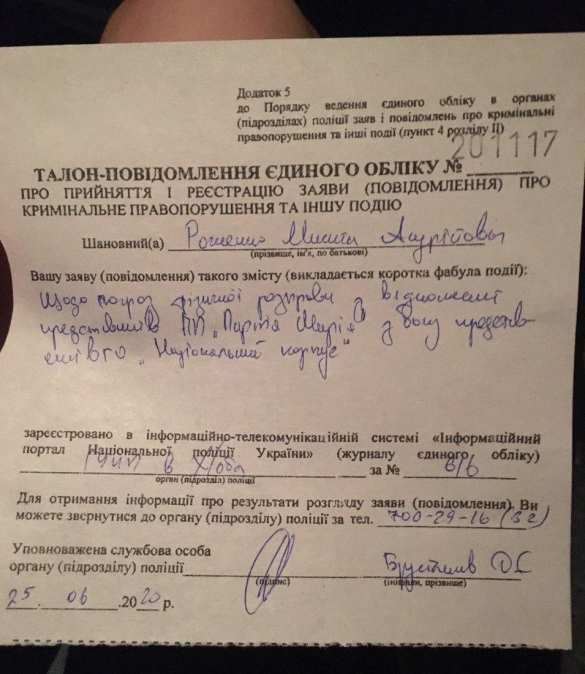 Додаток 5
до Порядку ведення єдиного обліку в органах
(підрозділах) поліції заяв і повідомлень про кримінальні
правопорушення та інші події (пункт 4 розділу ІІ)
201117
ТАЛОН-ПОВІДОМЛЕННЯ ЄДИНОГО ОБЛІКУ №
ПРО ПРИЙНЯТТЯ І РЕЄСТРАЦІЮ ЗАЯВИ (ПОВІДОМЛЕННЯ) ПРО
КРИМІНАЛЬНЕ ПРАВОПОРУШЕННЯ ТА ІНШУ ПОДІЮ
Шановний(а) Микита
(прізвище, ім'я, по батькові)
Вашу заяву (повідомлення) такого змісту (викладається коротка фабула події):
Щодо погроз фізичної розправи з
представників ПП „Партія Шарія" з боку
„Національний корпус"
зареєстровано в інформаційно-телекомунікаційній системі «Інформаційний
портал Національної поліції України» (журналу єдиного обліку)
в за № б/б
орган (підрозділ) поліції
Для отримання інформації про результати розгляду заяви (повідомлення) Ви
можете звернутися до органу (підрозділу) поліції за тел. 700-29-16
Уповноважена службова особа
органу (підрозділу) поліції
(підпис) (ініціали, прізвище)
25.06.2020 р.